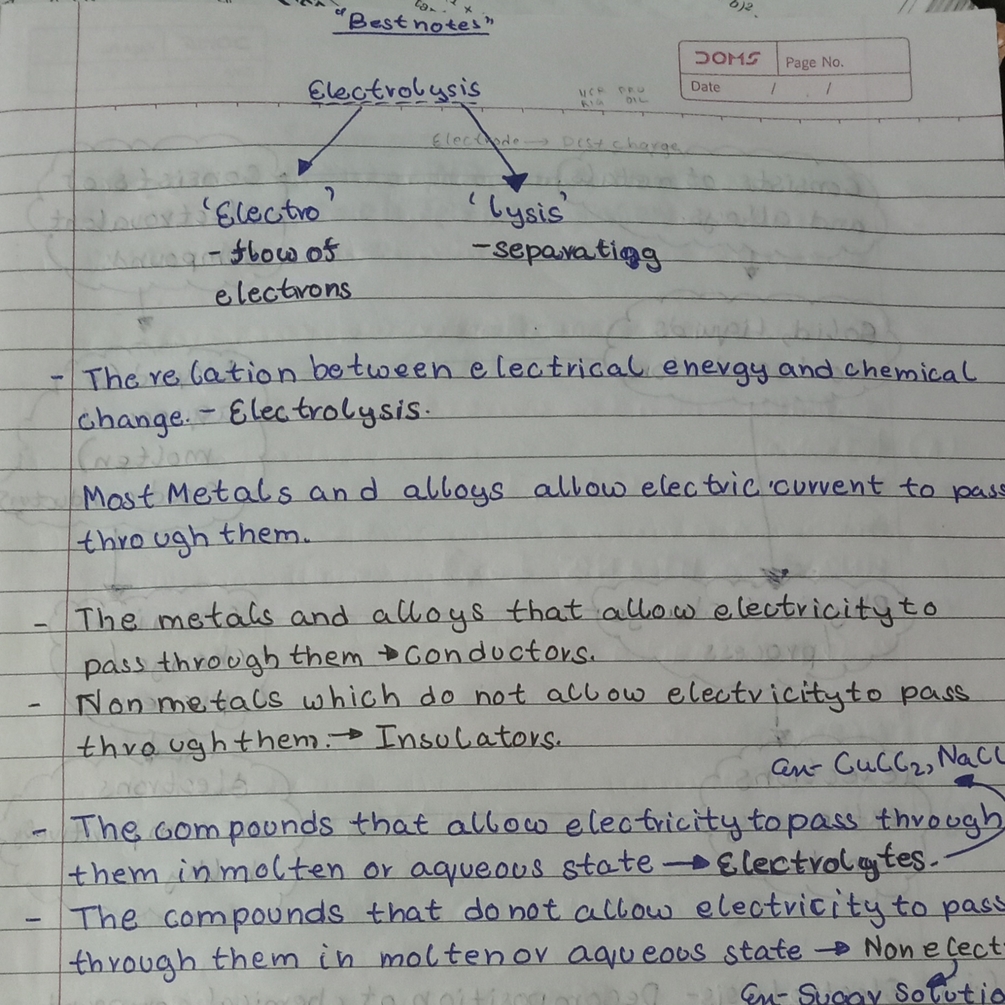 "Best notes"
DOMS Page No.
Date / /
Electrolysis
Electrode → Dest charge
'Electro' 'Lysis'
- flow of - separating
electrons
- The relation between electrical energy and chemical
change. - Electrolysis.
Most Metals and alloys allow electric current to pass
through them.
- The metals and alloys that allow electricity to
pass through them → Conductors.
- Non metals which do not allow electricity to pass
through them. → Insulators.
en- CuCl2, NaCl
- The compounds that allow electricity to pass through
them in molten or aqueous state → Electrolytes.
- The compounds that do not allow electricity to pass
through them in molten or aqueous state → Non elect
en- Sugar Solutio